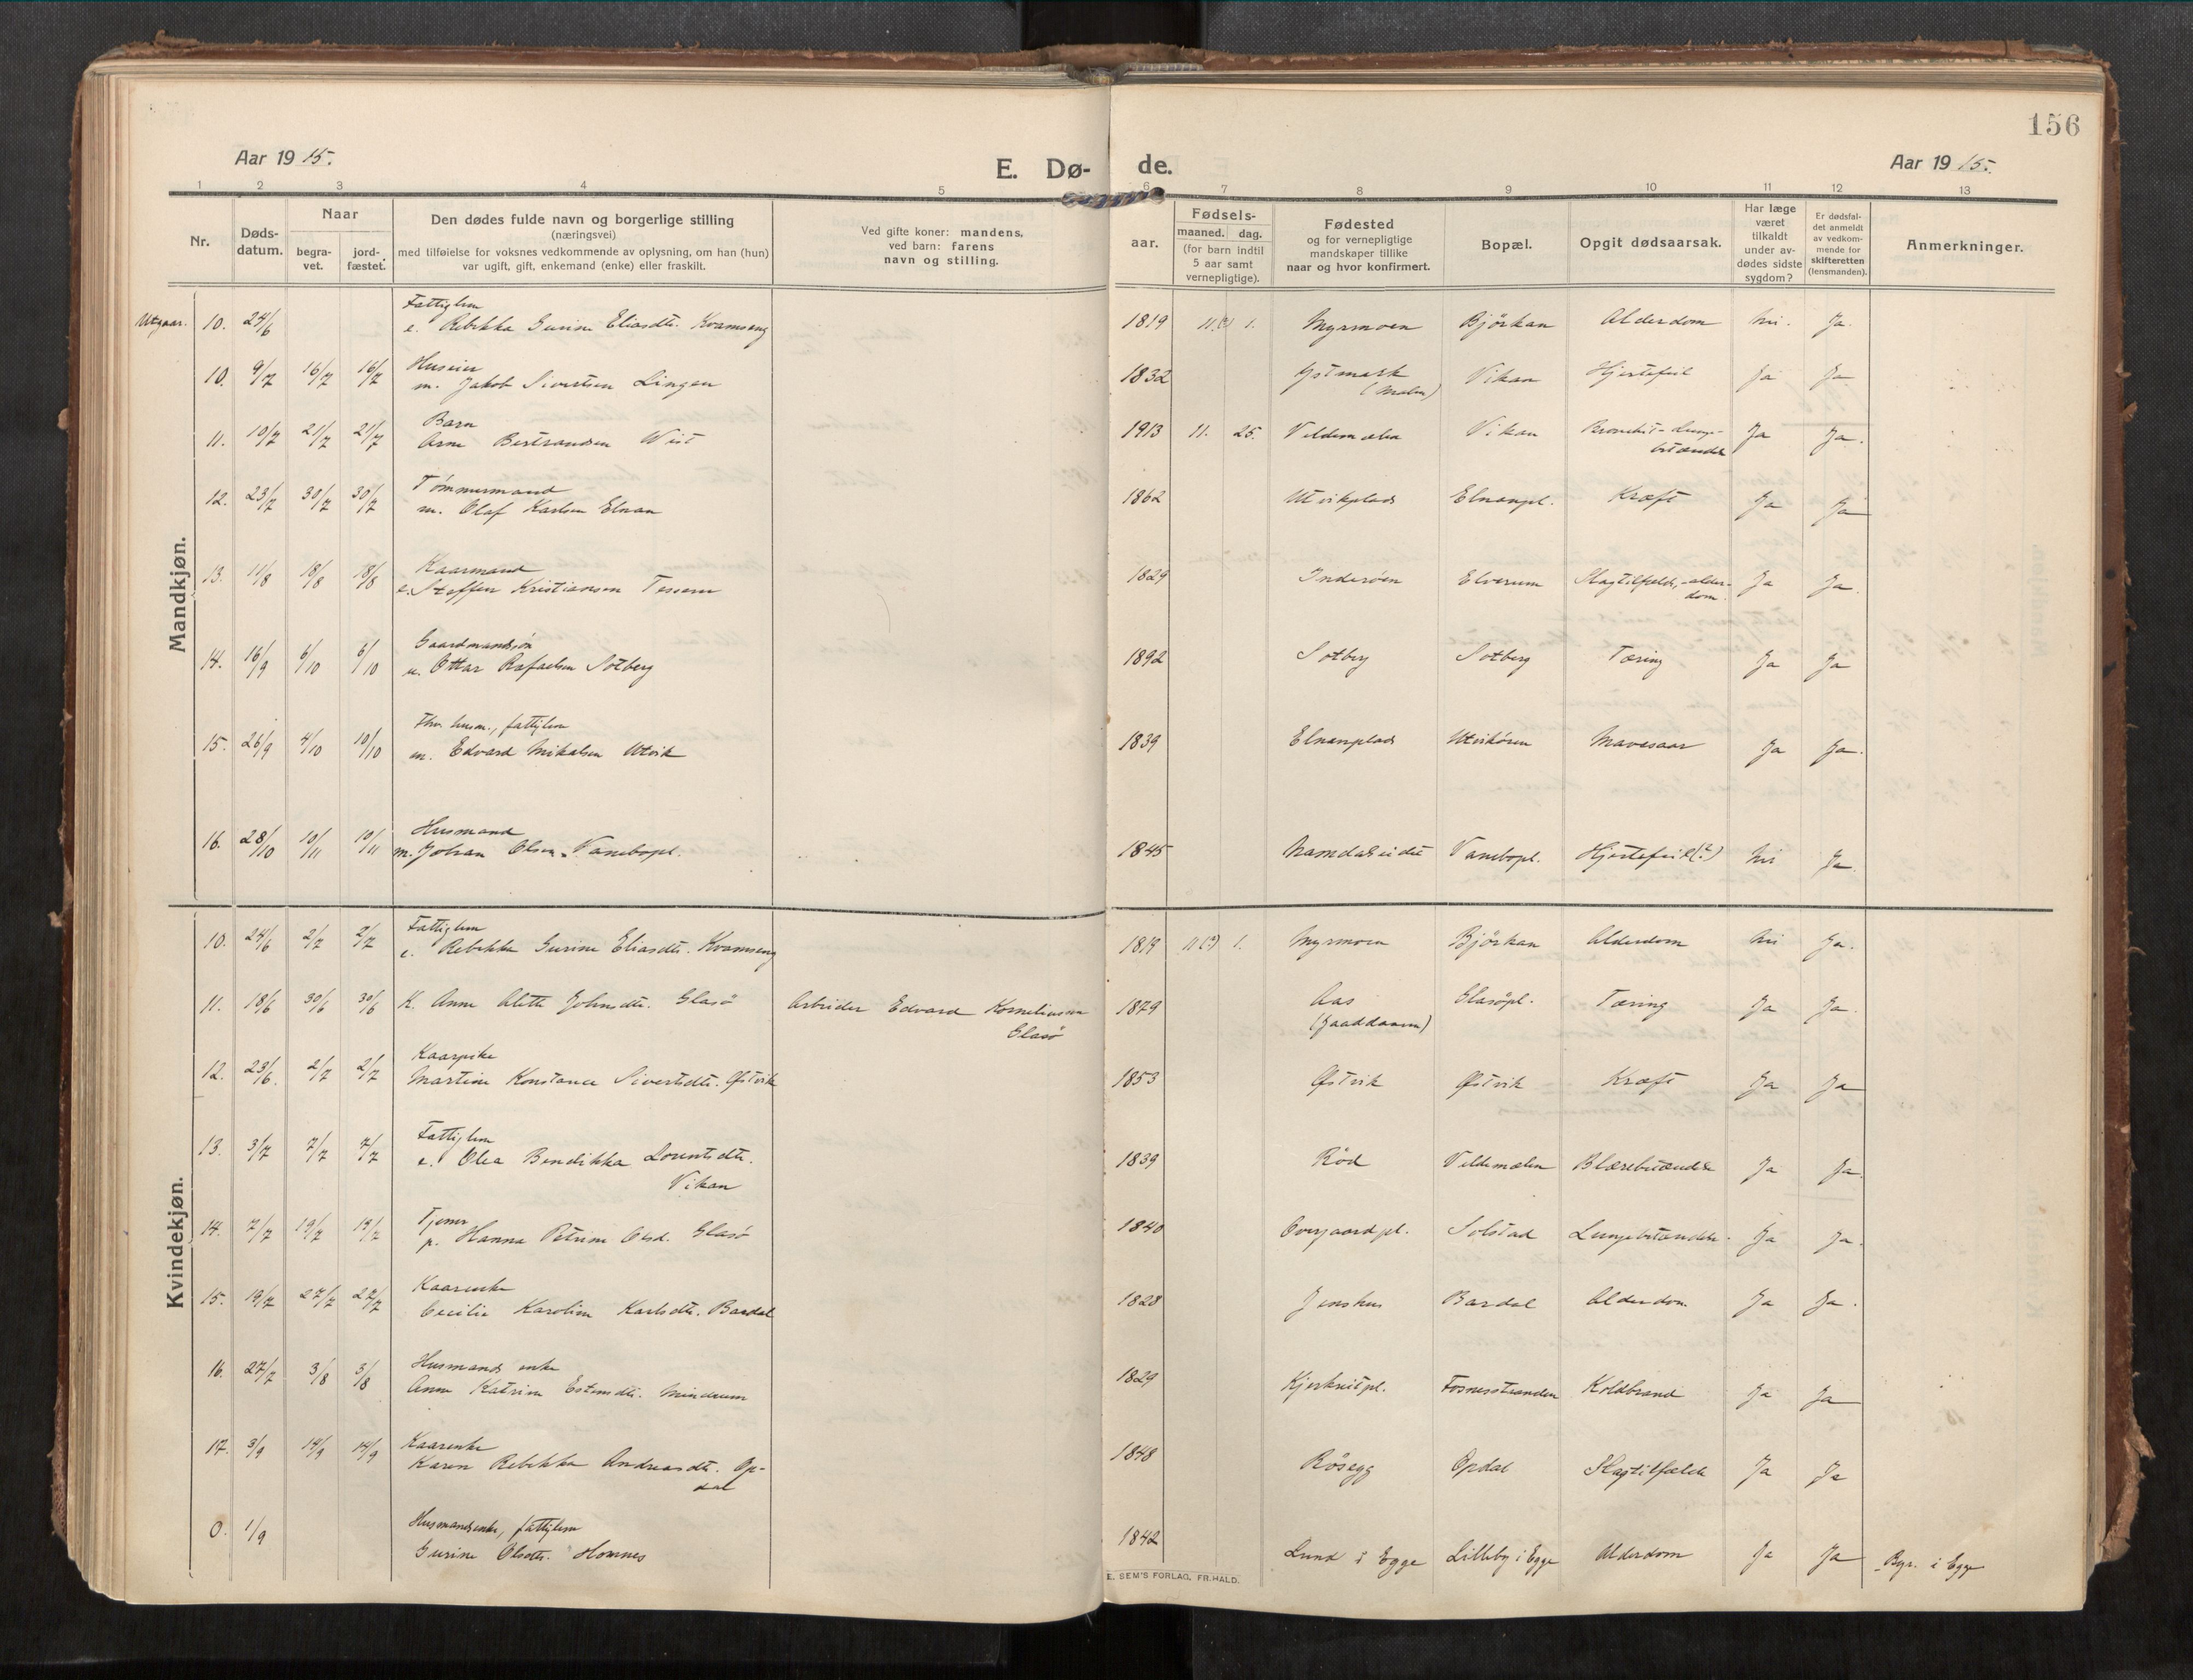 156
Aar 19 15.
E. Dø- de.
Aar 19 15.
1 2 3 4 5 6 7 8 9 10 11 12 13
Nr.
Døds-
datum.
Naar
begra-
vet.
jord-
fæstet.
Den dødes fulde navn og borgerlige stilling
(næringsvei)
med tilføielse for voksnes vedkommende av oplysning, om han (hun)
var ugift, gift, enkemand (enke) eller fraskilt.
Ved gifte koner: mandens,
ved barn: farens
navn og stilling.
aar.
Fødsels-
maaned. dag.
(for barn indtil
5 aar samt
vernepligtige).
Fødested
og for vernepligtige
mandskaper tillike
naar og hvor konfirmert.
Bopæl.
Opgit dødsaarsak.
Har læge
været
tilkaldt
under av-
dødes sidste
sygdom?
Er dødsfal-
det anmeldt
av vedkom-
mende for
skifteretten
(lensmanden).
Anmerkninger.
Mandkjøn.
Fattiglem
Utgaar. 10. 24/6 e. Rebekka Gurine Eliasdtr. Kvamseng 1819 11.(?) 1. Myrmoen Bjørkan Alderdom Nei. Ja.
Huseier
10. 9/7 16/7 16/7 m. Jakob Sivertsen Lingen 1832 Ystmark Vikan Hjertefeil Ja Ja
(Malm)
Barn
11. 19/7 21/7 21/7 Arne Bertransen Wist 1913 11. 25. Veldemælen Vikan Bronchit-Lunge- Ja Ja.
betændelse
Tømmermand
12. 23/7 30/7 30/7 m. Olaf Karlsen Elnan 1862 Utvikplads Elnanpl. Kræft Ja Ja
Kaarmand
13. 11/8 18/8 18/8 e. Steffen Kristiansen Tessem 1829 Inderøen Elverum Slagtilfælde, -alder- Ja Ja.
dom.
Gaardmandssøn
14. 16/9 6/10 6/10 u. Ottar Rafaelsen Solberg 1892 Solberg Solberg Tæring Ja Ja
Fhv. husm., fattiglem
15. 26/9 4/10 10/10 m. Edvard Mikalsen Utvik 1839 Elnanplads Utvikøren Mavesaar Ja Ja.
Husmand
16. 28/10 10/11 10/11 m. Johan Olsen Vanebopl. 1845 Namdalseidet Vanebopl. Hjertefeil(?) Nei Ja.
Kvindekjøn.
Fattiglem
10. 24/6 2/7 2/7 e. Rebekka Gurine Eliasdtr. Kvamseng 1819 11(?) 1. Myrmoen Bjørkan Alderdom Nei Ja.
11. 18/6 30/6 30/6 K. Anne Aletta Johnsdtr. Glasø Arbeider Edvard Korneliussen 1879 Aas Glasøpl. Tæring Ja Ja.
Glasø
Kaarpike
12. 23/6. 2/7 2/7 Martine Konstance Sivertsdtr. Østvik 1853 Østvik Østvik Kræft Ja Ja
Fattiglem
13. 3/7 7/7 7/7 e. Olea Bendikka Lorentsdtr. 1839 Rød Veldemælen Blærebetændelse Ja Ja.
Vikan
Tjener
14. 7/7 19/7 19/7 p. Hanna Petrine Olsd. Glasø 1840 Overgaardpl. Solstad Lungebetændelse. Ja Ja.
Kaarenke
15. 19/7 27/7 27/7 Cecilie Karoline Karlsdtr. Bardal 1828 Jenshus Bardal Alderdom Ja Ja.
Husmands enke
16. 27/7 3/8 3/8 Anne Katrine Estensdtr. Mindrum 1829 Fosnesstranden Koldbrand Ja Ja
Kaarenke
17. 3/9 14/9 14/9 Karen Rebekka Andreasdtr. Op- 1848 Røsegg Opdal Slagtilfælde Ja Ja
dal
Husmandsenke, fattiglem
0. 1/9 Gurine Olsdtr. Homnes 1842 Lund i Egge Lilleby i Egge Alderdom Ja Ja Bgr. i Egge
E. SEM'S FORLAG, FR.HALD.